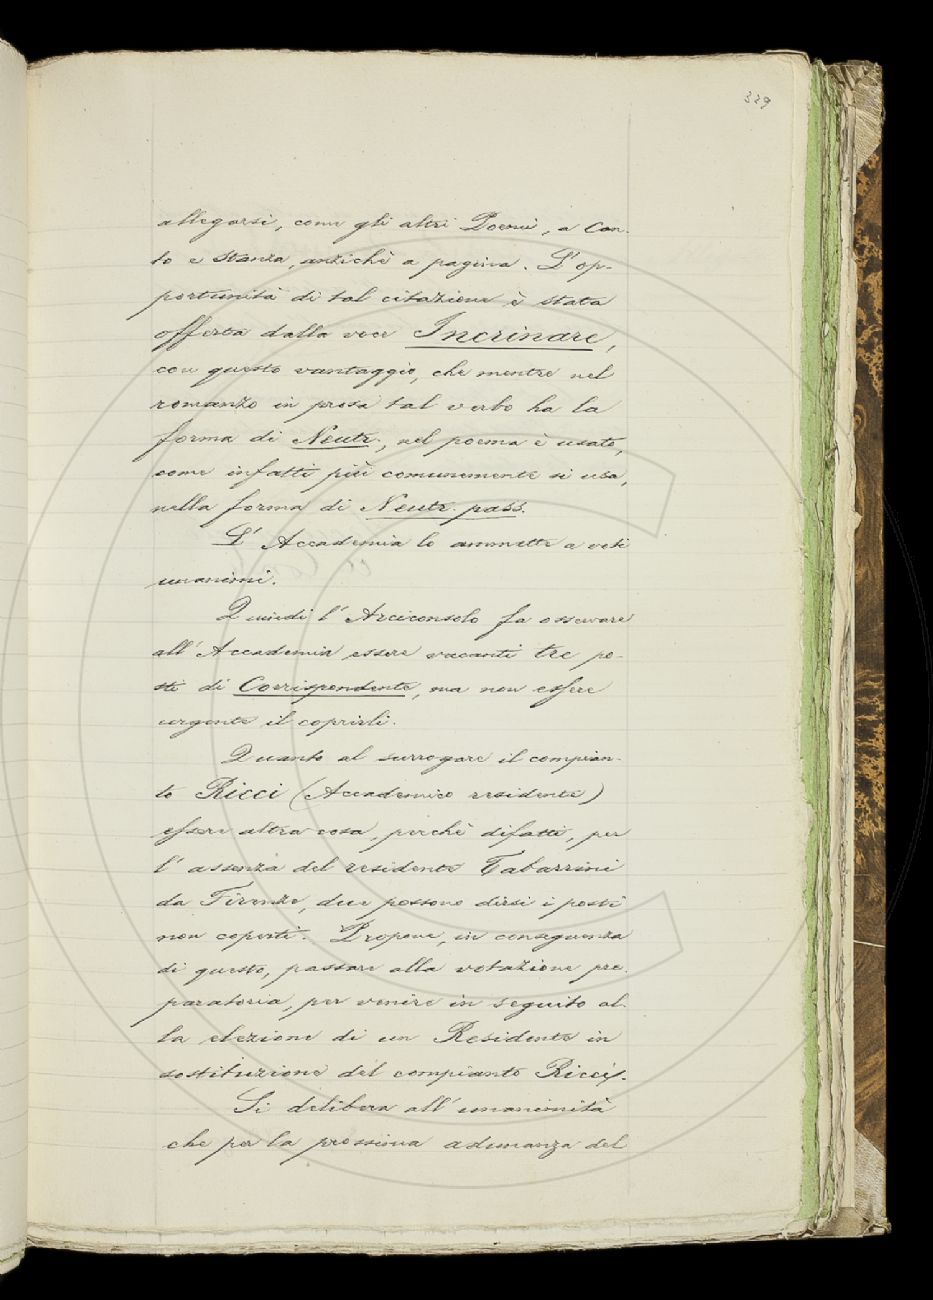 329
allegarsi, come gli altri Poemi, a Can-
to e Stanza, anzichè a pagina. L'op-
portunità di tal citazione è stata
offerta dalla voce Incrinare,
con questo vantaggio, che mentre nel
romanzo in prosa tal verbo ha la
forma di Neutr., nel poema è usato,
come infatti più comunemente si usa,
nella forma di Neutr. pass.
L'Accademia lo ammette a voti
unanimi.
Quindi l'Arciconsolo fa osservare
all'Accademia essere vacanti tre po-
sti di Corrispondente, ma non essere
urgente il coprirli.
Quanto al surrogare il compian-
to Ricci (Accademico residente)
essere altra cosa, perchè difatti, per
l'assenza del residente Tabarrini
da Firenze, due possono dirsi i posti
non coperti. Propone, in conseguenza
di questo, passare alla votazione pre-
paratoria, per venire in seguito al-
la elezione di un Residente in
sostituzione del compianto Ricci.
Si delibera all'unanimità
che per la prossima adunanza del